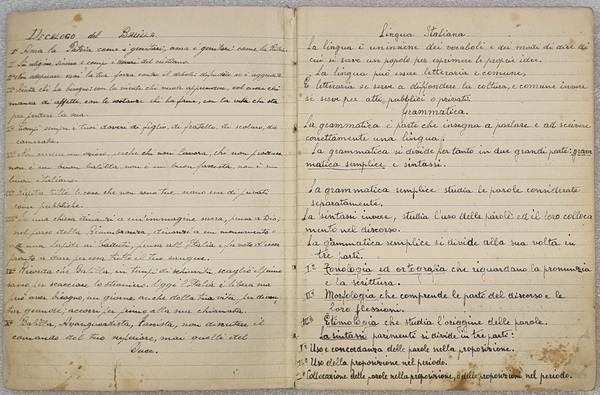 Decalogo del Balilla
1º Ama la Patria come i genitori, ama i genitori come la Patria.
non adoperare mai la tua forza contro il debole, difendilo se è aggredito.
Aiuta chi ha bisogno: con la mente che vuole apprendere, col cuore chi
manca di affetti, con le sostanze chi ha fame, con la vita chi sta
per perdere la sua.
Compi sempre i tuoi doveri di figlio, di fratello, di scolaro, di
camerata.
Non essere un ozioso, perché chi non lavora, che non produce
non è un buon balilla, non è un buon fascista, non è un
buon italiano.
Rispetta tutte le cose che non sono tue, siano esse di privati
come pubbliche.
Se una chiesa dinanzi a un'immagine sacra, pensa a Dio;
nel parco della Rimembranza, dinanzi a un monumento o
a una lapide ai Caduti, pensa all'Italia e prometti d'essere
pronto a dare per essa tutto il tuo sangue.
Ricorda che Balilla, in tempi di schiavitù scagliò il primo
sasso per scacciare lo straniero. Oggi l'Italia è libera ma
può aver bisogno, un giorno, anche della tua vita, per divenire
più grande; accorri per primo alla sua chiamata.
Xº Balilla, Avanguardista, Fascista, non discutere il
comando del tuo superiore, mai quello del
Duce.
Lingua Italiana.
La lingua è un'insieme dei vocaboli e dei modi di dire di
cui si serve un popolo per esprimere le proprie idee.
La lingua può essere letteraria e comune,
È letteraria se serve a diffondere la coltura, e comune invece
se serve per atti, pubblici o privati.
Grammatica.
La grammatica è l'arte che insegna a parlare e ad scrivere
correttamente una lingua.
La grammatica si divide pertanto in due grandi parti: gram
matica semplice e sintassi.
La grammatica semplice studia le parole considerate
separatamente.
La sintassi invece, studia l'uso delle parole ed il loro colloca
mento nel discorso.
La gammatica semplice si divide alla sua volta in
tre parti.
Iª Fonologia ed ortografia che riguardano la pronunzia
e la scrittura.
IIª Morfologia che comprende le parte del discorso e le
loro flessioni.
IIIª Etimologia che studia l'origgine delle parole.
La sintassi parimenti si divide in tre parti:
Iª Uso e concordanza delle parole nella proposizione.
IIª Uso della proposizione nel periodo.
IIIª Collocazione delle parole nella proposizione, o delle proposizioni nel periodo.